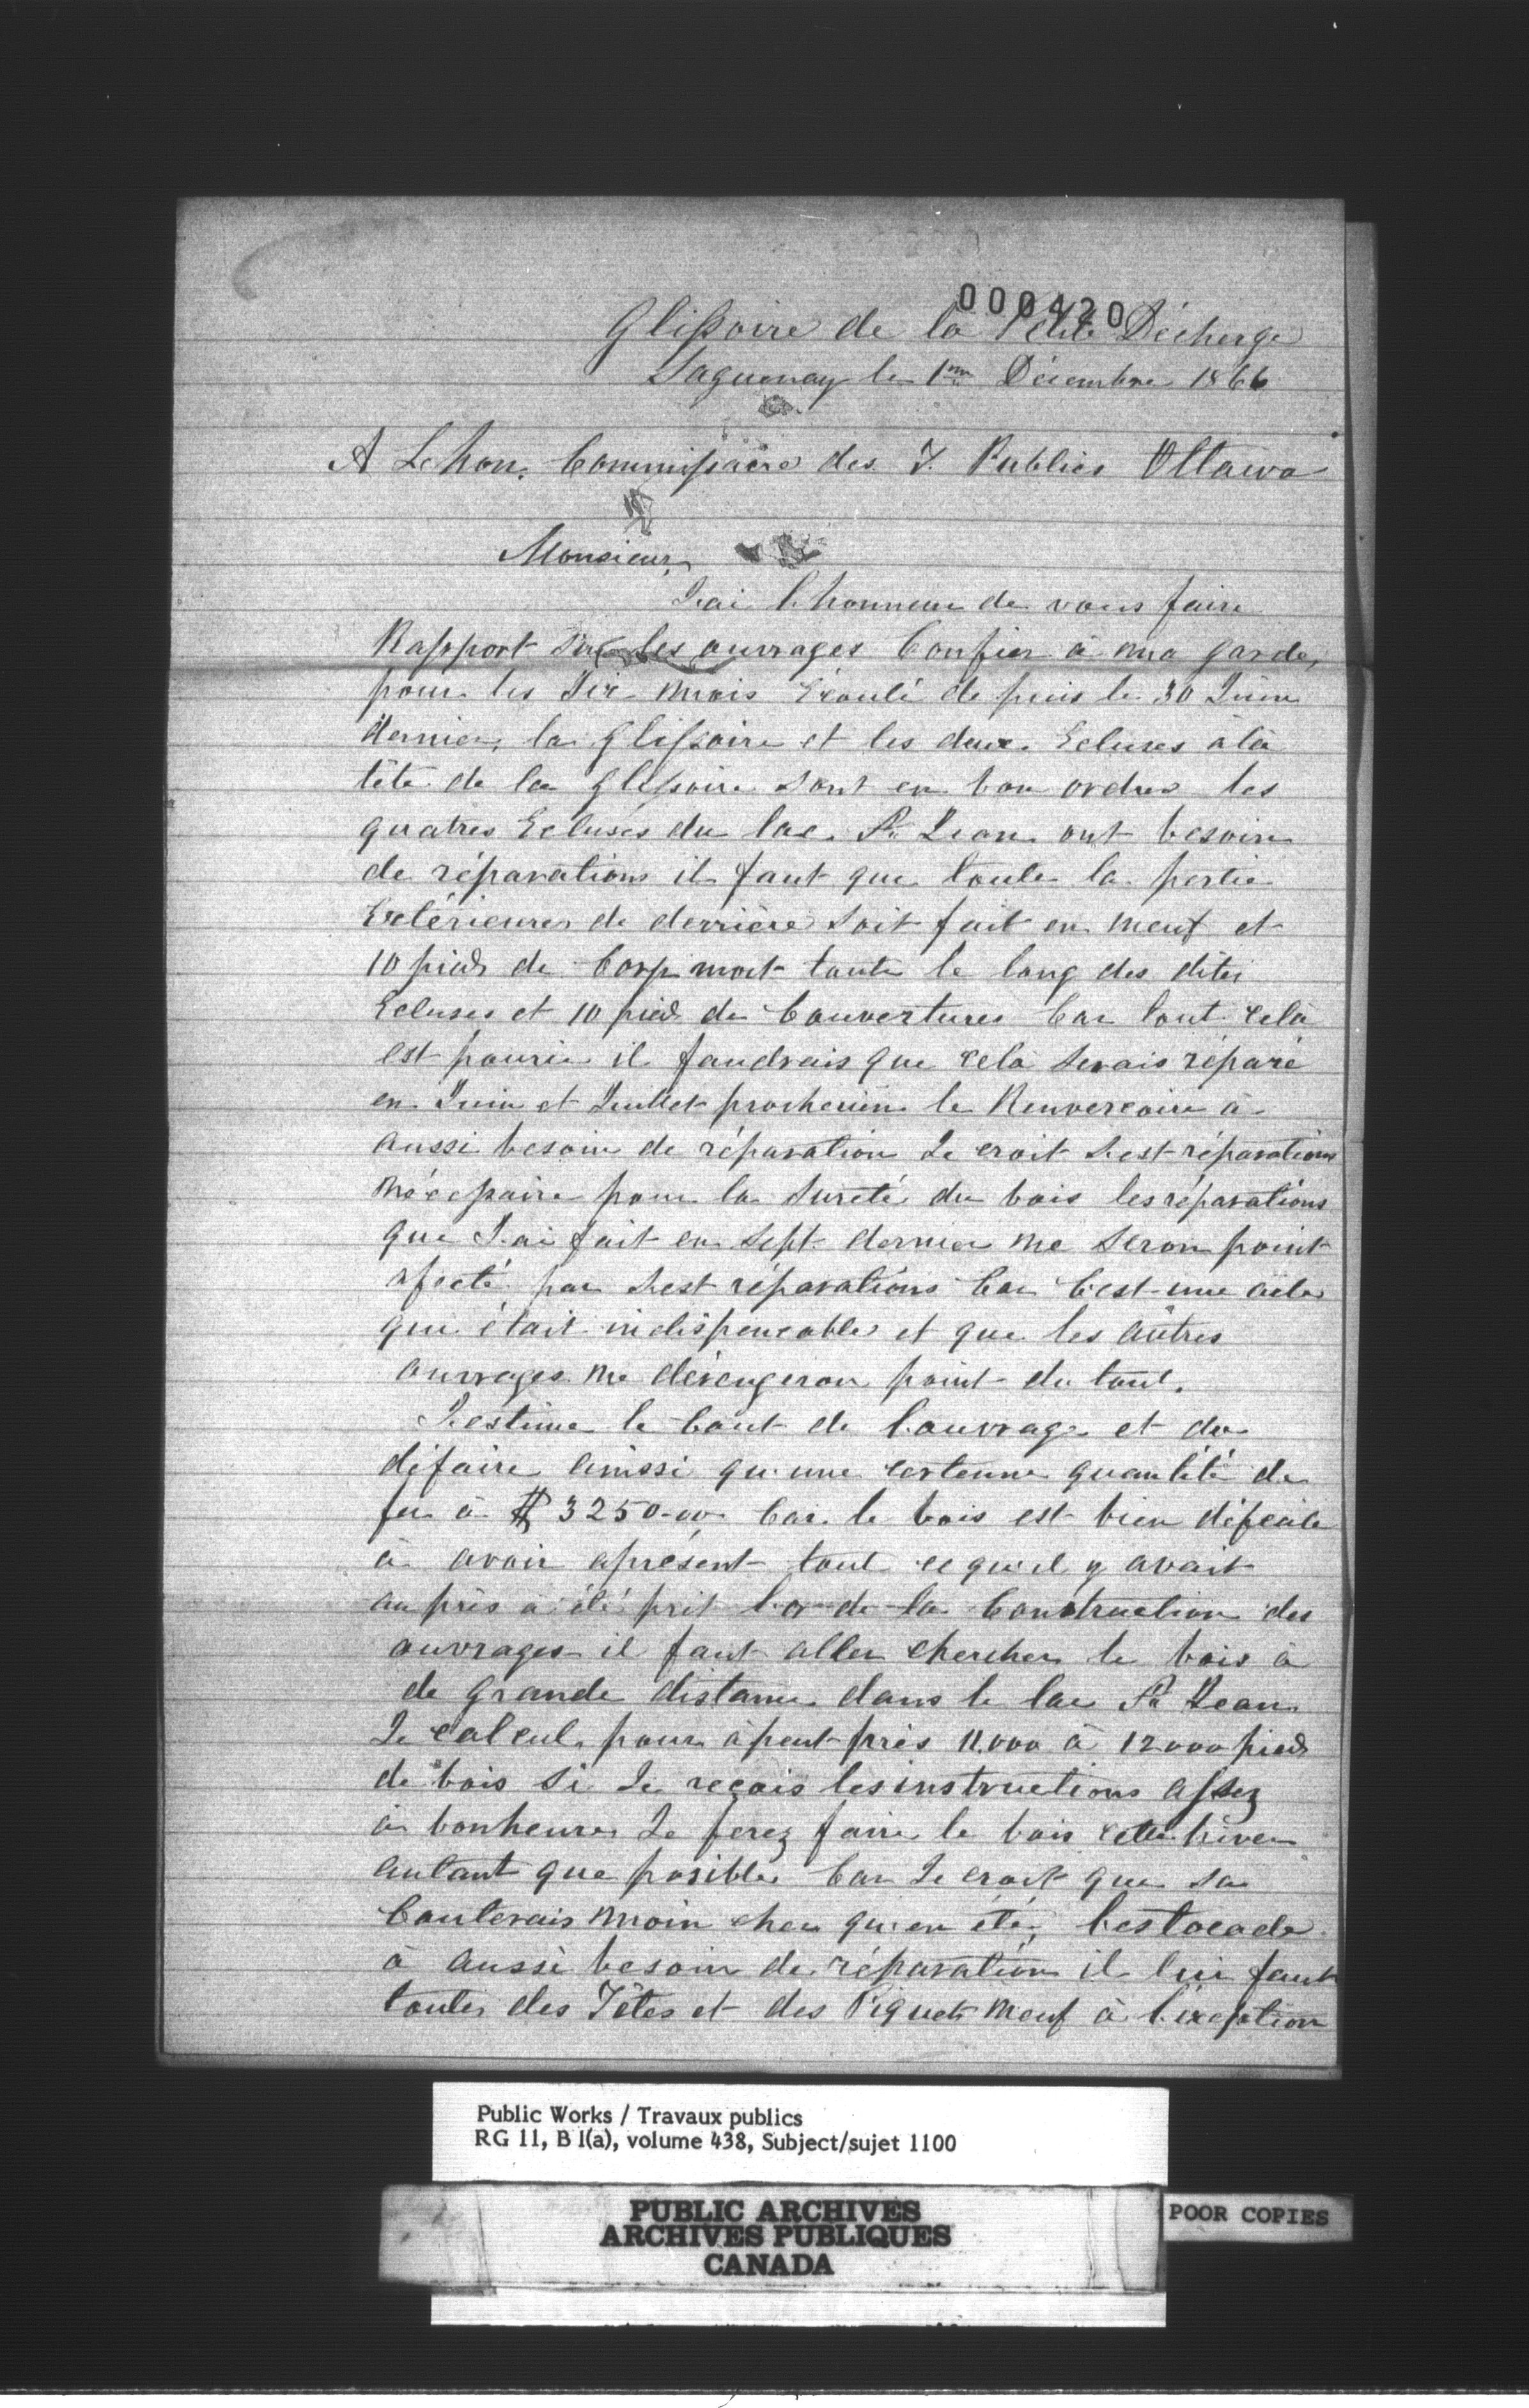 000420
Glissoire de la Petite Décherge
Saguenay le 1er Décembre 1866
A Lhon. Commissaire des T. Publics Ottawa
Monsieur,
J.ai l.honneur de vous faire
Rapport sur les ouvrages Confier à ma garde,
pour les Six mois Écoulé de puis le 30 Juin
dernier, la glissoire et les deux Ecluses à la
tête de la glissoire sont en bon ordre les
quatres Ecluses du lac St Jean ont besoin
de réparations il faut que toute la partie
Extérieures de derrière soit fait en neuf et
10 pieds de Corp mort toute le long des dites
Ecluses et 10 pieds de Couvertures Car tout celà
est pourie il faudrais que celà serais réparé
en Juin et Juillet prochein le Renverçoire à
aussi besoin de réparation Je croit s.est réparations
nécessaire pour la sureté du bois les réparations
que J.ai fait en Sept. dernier ne seron point
afecté par s.est réparations Car C'est une aile
qui était indispencable et que les autres
ouvrages ne dérengeron point du tout.
J.estime le Cout de l.ouvrage et du
défaire ainssi qu.une certenne quantité de
fer à $3250-00 Car le bois est bien dificile
à avoir aprésent tout ce qu.il y avait
au près à été prit l.or de la Construction des
ouvrages il faut aller chercher le bois à
de grande distance dans le lac St Jean
Je calcul pour àpeut près 11.000 à 12000 pieds
de bois si Je reçois les instructions assez
à bonheure Je ferez faire le bois cette hiver
autant que posible Car Je croit que sa
Couterais moin cher qu.en été, l.estocade
à aussi besoin de réparation il lui faut
toutes des Têtes et des Piquets neuf à l.exception
Public Works / Travaux publics
RG 11, B 1(a), volume 438, Subject/sujet 1100
PUBLIC ARCHIVES
ARCHIVES PUBLIQUES
CANADA
POOR COPIES